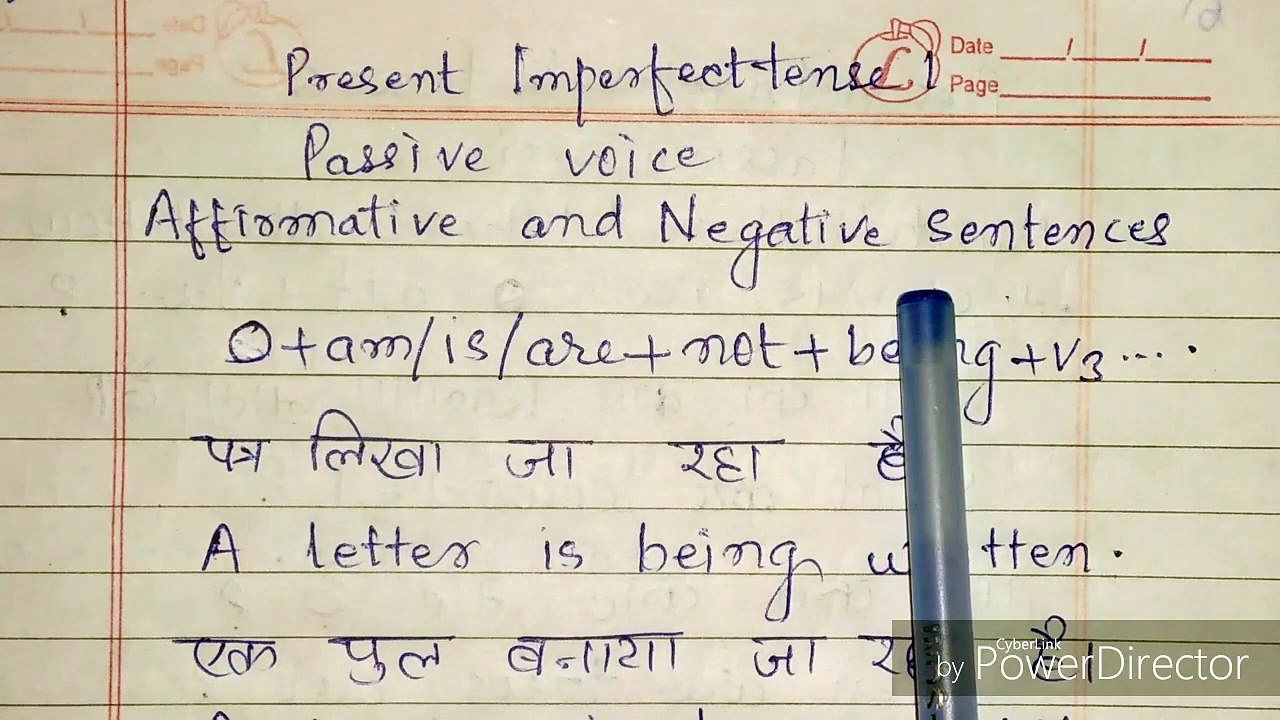 Date / /
Page
Present Imperfect tense
Passive voice
Affirmative and Negative Sentences
O + am/is/are + not + being + V3 ....
पत्र लिखा जा रहा है
A letter is being written.
एक पुल बनाया जा रहा है।
CyberLink
by PowerDirector